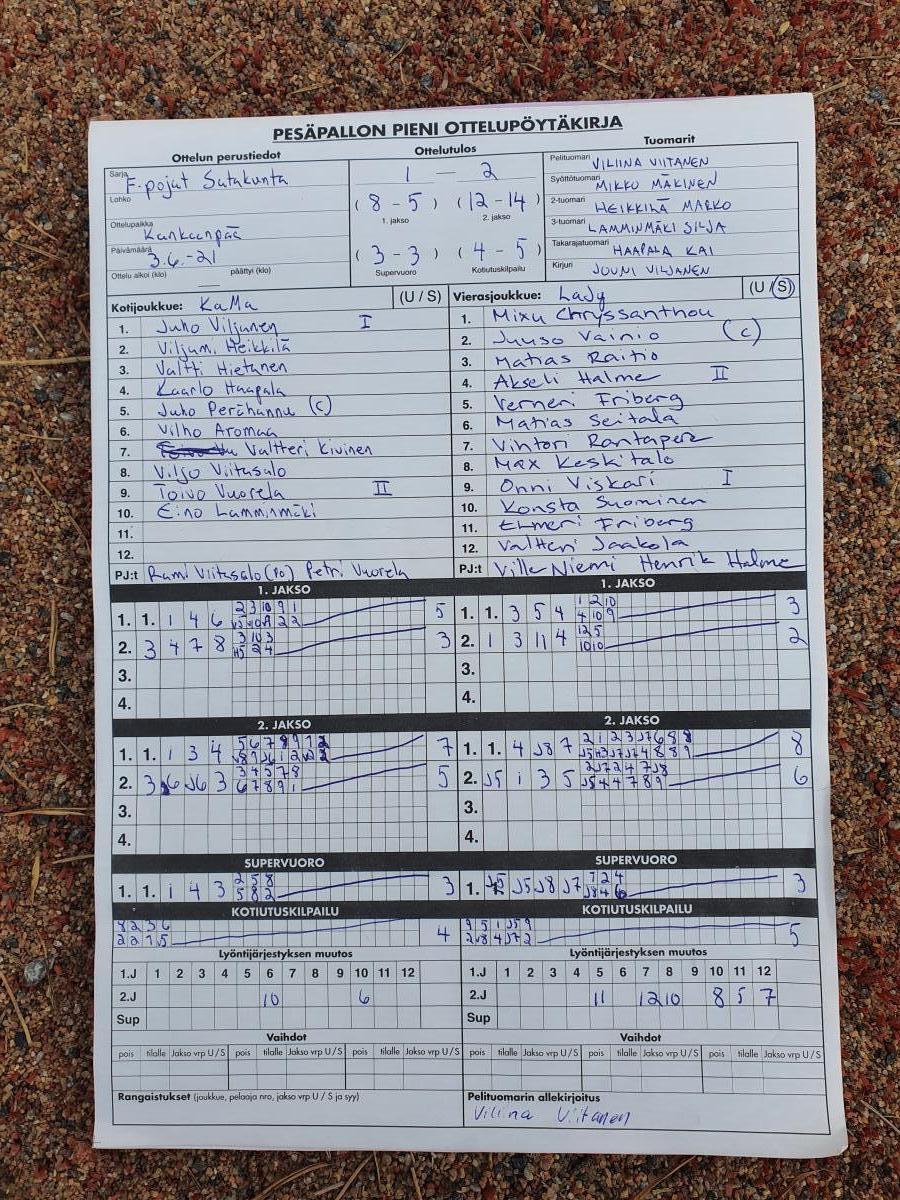 PESÄPALLON PIENI OTTELUPÖYTÄKIRJA
Ottelun perustiedot
Sarja F-pojat Satakunta
Lohko
Ottelupaikka Kankaanpää
Päivämäärä 3.6.-21
Ottelu alkoi (klo) päättyi (klo)
Ottelutulos
1 — 2
( 8 - 5 ) ( 12 - 14 )
1. jakso 2. jakso
( 3 - 3 ) ( 4 - 5 )
Supervuoro Kotiutuskilpailu
Tuomarit
Pelituomari VILIINA VIITANEN
Syöttötuomari MIKKO MÄKINEN
2-tuomari HEIKKILÄ MARKO
3-tuomari LAMMINMÄKI SILJA
Takarajatuomari HAAPALA KAI
Kirjuri JOUNI VILJANEN
Kotijoukkue: KaMa (U / S)
1. Juho Viljanen I
2. Viljami Heikkilä
3. Valtti Hietanen
4. Kaarlo Haapala
5. Juho Perähannu (C)
6. Vilho Aromaa
7. Valtteri Kivinen
8. Viljo Viitasalo
9. Toivo Vuorela II
10. Eino Lamminmäki
11.
12.
PJ:t Rami Viitasalo (PO) Petri Vuorela
Vierasjoukkue: Lady (U / S)
1. Mixu Chryssanthou
2. Juuso Vainio (C)
3. Matias Raitio
4. Akseli Halme II
5. Verneri Friberg
6. Matias Seitala
7. Vihtori Rantapere
8. Max Keskitalo
9. Onni Viskari I
10. Konsta Suominen
11. Elmeri Friberg
12. Valtteri Jaakola
PJ:t Ville Niemi Henrik Halme
1. JAKSO
1. 1. 1 4 6 5
2. 3 4 7 8 3
3.
4.
1. JAKSO
1. 1. 3 5 4 3
2. 1 3 11 4 2
3.
4.
2. JAKSO
1. 1. 1 3 4 7
2. 5
3.
4.
2. JAKSO
1. 1. 4 J8 7 8
2. J5 1 3 5 6
3.
4.
SUPERVUORO
1. 1. 1 4 3 2 5 8 3
5 8 2
SUPERVUORO
1. J5 J8 J7 7 2 4 3
KOTIUTUSKILPAILU
8 2 3 6 4
KOTIUTUSKILPAILU
9 5 1 J5 9 5
Lyöntijärjestyksen muutos
1.J 1 2 3 4 5 6 7 8 9 10 11 12
2.J 10 6
Sup
Lyöntijärjestyksen muutos
1.J 1 2 3 4 5 6 7 8 9 10 11 12
2.J 11 12 10 8 5 7
Sup
Vaihdot
pois tilalle Jakso vrp U / S pois tilalle Jakso vrp U / S
Vaihdot
pois tilalle Jakso vrp U / S pois tilalle Jakso vrp U / S
Rangaistukset (joukkue, pelaaja nro, jakso vrp U / S ja syy)
Pelituomarin allekirjoitus
Viliina Viitanen